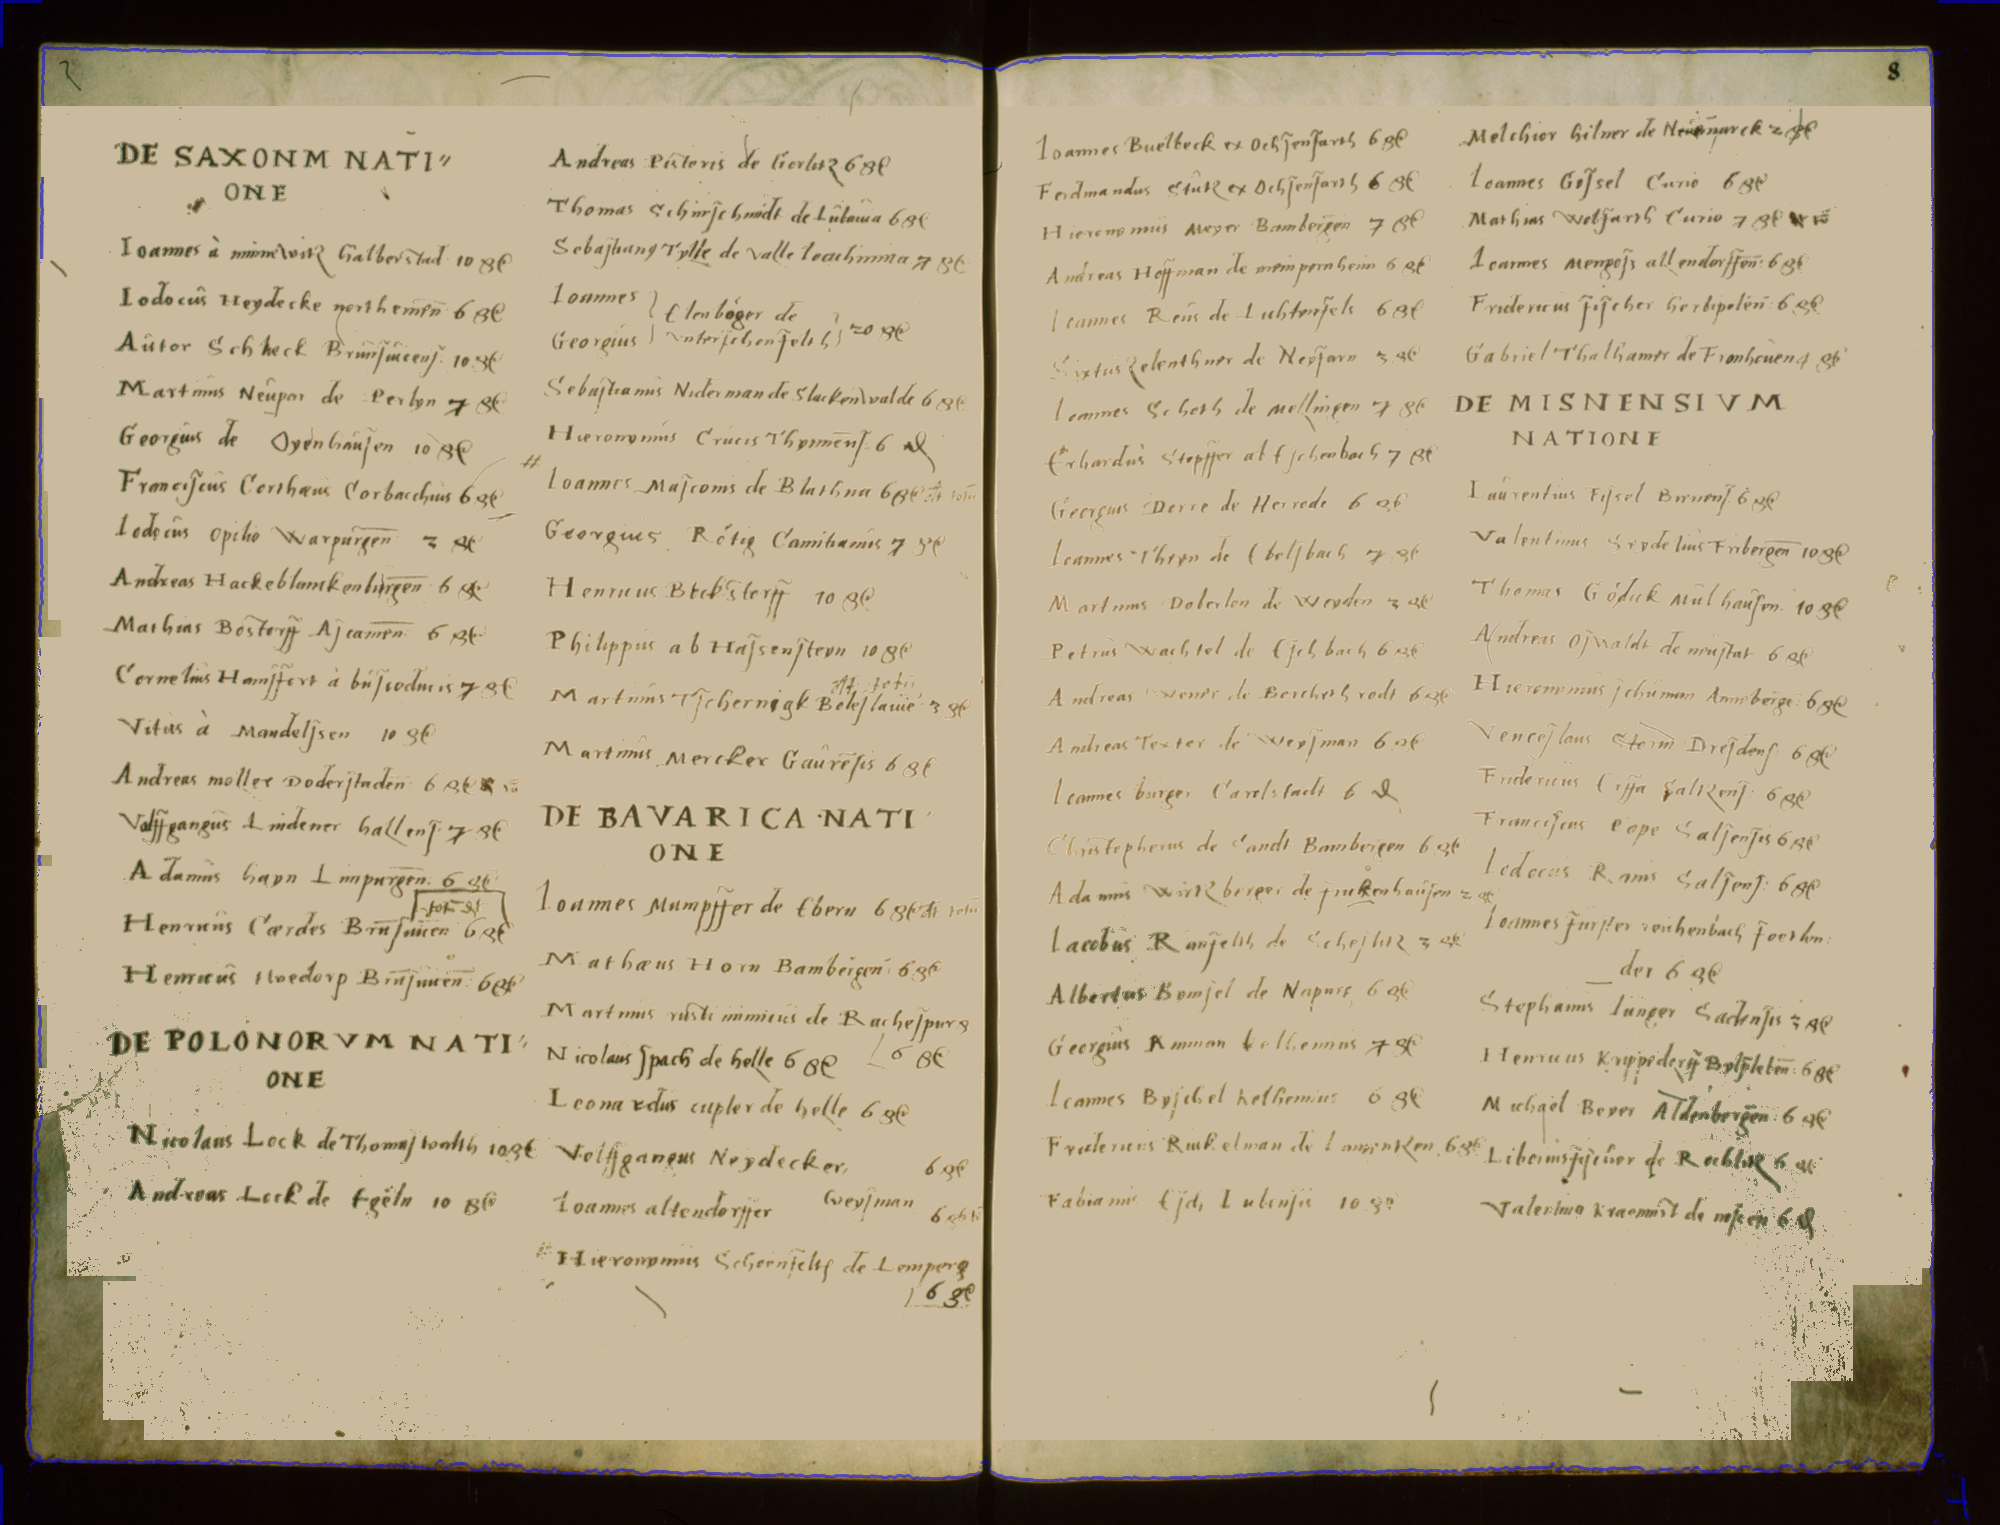 8
DE SAXONM NATI"
ONE
Ioannes à minnewitz halberstad 10 gℓ
Iodocus Heydecke northemen 6 gℓ
Autor Scheck Brunsuicens. 10 gℓ
Martinus Neupar de Perlyn 7 gℓ
Georgius de Oyenhausen 10 gℓ
Franciscus Corthæus Corbacchius 6 gℓ
Iodocus opilio Warpurgen 3 gℓ
Andreas Hackeblanckenburgen 6 gℓ
Mathias Bostorff Ascamen 6 gℓ
Cornelius Hamsfort à buscoducis 7 gℓ
Vitus à Mandelssen 10 gℓ
Andreas moller Doderstaden 6 gℓ
Volffgangus Lindener hallens. 7 gℓ
Adamus hayn Limpurgen. 6 gℓ
totū dt
Henricus Cœrdes Brunsuicen 6 gℓ
Henricus Brunsuicen 6 gℓ
DE POLONORVM NATI"
ONE
Nicolaus Lock de Thomaswalth 10 gℓ
Andreas Lock de Egeln 10 gℓ
Andreas Pistoris de Gorlitz 6 gℓ
Thomas Schirschmidt de Lubauia 6 gℓ
Sebastianus Tylle de valle Ioachimina 7 gℓ
Ioannes
Elenboger de
Georgius vnterschonfelth 20 gℓ
Sebastianus Niderman de Slackenwalde 6 gℓ
Hieronymus Crucis Thynnens. 6 gℓ
Ioannes Mascomis de Blathna 6 gℓ dt totū
Georgius Rötig Camitianus 7 gℓ
Henricus Bockstorff 10 gℓ
Philippus ab Hassensteyn 10 gℓ
dt totū
Martinus Tschernigk Boleslauie 3 gℓ
Martinus Mercker Gaurēsis 6 gℓ
DE BAVARICA NATI
ONE
Ioannes Mumpffer de Ebern 6 gℓ dt totū
Mathæus Horn Bambergen 6 gℓ
Martinus rusti mimicus de Rachespurg
Nicolaus spach de helle 6 gℓ 6 gℓ
Leonardus cupler de helle 6 gℓ
Volffgangus Neydecker, 6 gℓ
Ioannes altendorffer Weysman 6 gℓ
Hieronymus Schoenfelth de Lemperg
6 gℓ
Ioannes Buelbeck ex Ochsenfarth 6 gℓ
Ferdinandus Stutz ex Ochsenfarth 6 gℓ
Hieronymus Meyer Bambergen 7 gℓ
Andreas Hoffman de meinpernheim 6 gℓ
Ioannes Reus de Lichtenfels 6 gℓ
Sixtus Zelenthner de Neysarn 3 gℓ
Ioannes Schoth de Mellingen 7 gℓ
Erhardus Stopffer ab Eschenbach 7 gℓ
Georgius Dorre de Herrode 6 gℓ
Ioannes Theyn de Ebelsbach 7 gℓ
Martinus Doberlen de Weyden 3 gℓ
Petrus Wachtel de Eschbach 6 gℓ
Andreas Wener de Borcheth rodt 6 gℓ
Andreas Textor de Weysman 6 gℓ
Ioannes burger Carelstadt 6 gℓ
Christopherus de Sandt Bambergen 6 gℓ
Adamus Wirtzberger de franckenhausen 2 gℓ
Iacobus Ranfelth de Scheslitz 3 gℓ
Albertus Bomsel de Napurg 6 gℓ
Georgius Amman kelhemius 7 gℓ
Ioannes Byschel kelhemius 6 gℓ
Fridericus Rinkelman de 6 gℓ
Fabianus 10 gℓ
Melchior hilner de Neumarck 2 gℓ
Ioannes Gössel Curio 6 gℓ
Mathias Wolfarth Curio 7 gℓ
Ioannes Mengoss allendorffen: 6 gℓ
Fridericus fischer herbipolen: 6 gℓ
Gabriel Thalhamer de Fronhouen 4 gℓ
DE MISNENSIVM
NATIONE
Laurentius Fissel Bornens 6 gℓ
Valentinus Seydelius Fribergen 10 gℓ
Thomas Gödick Mulhausen. 10 gℓ
Andreas Oswaldt de neustat 6 gℓ
Hieronymus schuman Anneberge: 6 gℓ
Venceslaus Storm Dresdens: 6 gℓ
Fridericus Saltzens: 6 gℓ
Franciscus Pope Salsensis 6 gℓ
Iodocus Ranis Salsens: 6 gℓ
Ioannes furster reichenbach foerlen:
der 6 gℓ
Stephanus Iunger Sadensis 3 gℓ
Henricus 6 gℓ
Michael Beyer Aldenbergen: 6 gℓ
Liborius de Rochlitz 6 gℓ
Valentinus Kraemist de 6 gℓ